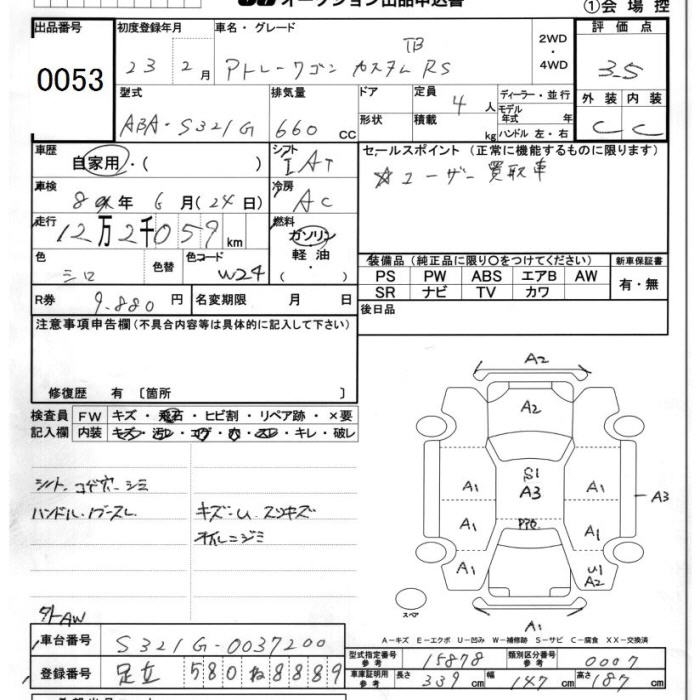 オークション出品申込書
①会場控
出品番号 初度登録年月 車名・グレード 評価点
0053
23 2月 アトレーワゴン カスタムRS TB 2WD・4WD 3.5
型式 排気量 ドア 定員 4人 ディーラー・並行 外装 内装
モデル年式 年
ABA-S321G 660cc 形状 積載 kg ハンドル 左・右 C C
車歴 自家用・( ) シフト IAT セールスポイント (正常に機能するものに限ります)
☆ユーザー買取車
車検 8年 6月(24日) 冷房 AC
走行 12万2千059km 燃料 ガソリン 軽油・( )
色 シロ 色替 色コード W24
装備品(純正品に限り○をつけてください) 新車保証書
PS PW ABS エアB AW 有・無
SR ナビ TV カワ
R券 9.880円 名変期限 月 日 後日品
注意事項申告欄(不具合内容等は具体的に記入して下さい)
修復歴 有 〔箇所 〕
検査員 FW キズ・飛石・ヒビ割・リペア跡・×要
記入欄 内装 キズ・汚レ・コゲ・穴・スレ・キレ・破レ
シート、コゲ穴・シミ
ハンドル・ノブスレ キズ・U・スリキズ
オイルニジミ
A2
A2
S1
A3
A1 A1 A3
A1 A1
A1 U1
A2
A1
スペア
A−キズ E−エクボ U−凹み W−補修跡 S−サビ C−腐食 XX−交換済
外AW
車台番号 S321G-0037200
型式指定番号 参考 15878 類別区分番号 参考 0007
登録番号 足立 580 ね 8889
車庫証明用 参考 長さ 339cm 幅 147cm 高さ 187cm